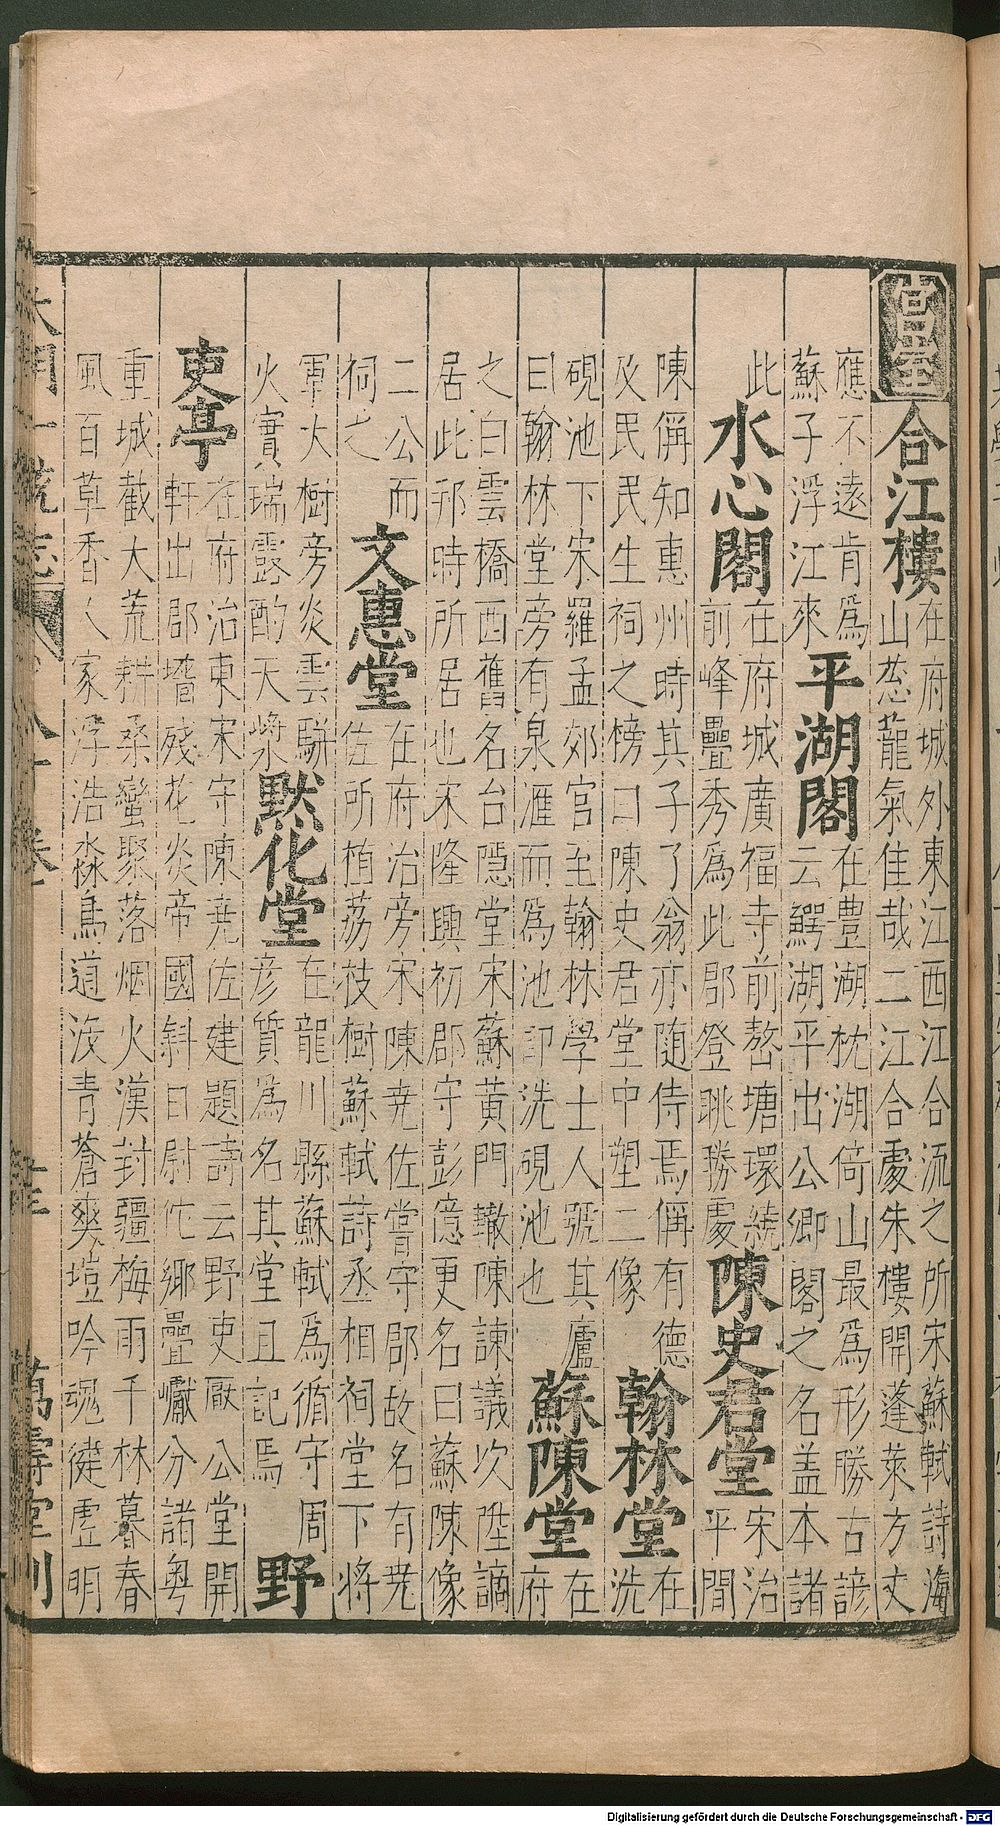 宮室 合江樓 在府城外東江西江合流之所宋蘇軾詩海
山葱蘢氣佳哉二江合處朱樓開蓬萊方丈
應不遠肯為
蘇子浮江來 平湖閣 在豐湖枕湖倚山最為形勝古諺
云鰐湖平出公卿閣之名盖本諸
此 水心閣 在府城廣福寺前嶅塘環繞
前峰疊秀為此郡登眺勝處 陳史君堂 宋治
平間
陳偁知惠州時其子了翁亦随侍焉偁有德
及民民生祠之榜曰陳史君堂中塑二像 翰林堂 在
洗
硯池下宋羅孟郊官至翰林學士人號其廬
曰翰林堂旁有泉滙而為池即洗硯池也 蘇陳堂 在
府
之白雲橋西舊名台隱堂宋蘇黃門轍陳諫議次陞謫
居此邦時所居也宋隆興初郡守彭億更名曰蘇陳像
二公而
祠之 文惠堂 在府治旁宋陳尭佐嘗守郡故名有尭
佐所植荔枝樹蘇軾詩丞相祠堂下將
軍大樹旁炎雲駢
火實瑞露酌天漿 默化堂 在龍川縣蘇軾為循守周
彦質為名其堂且記焉 野
吏亭 在府治東宋守陳尭佐建題詩云野吏厰公堂開
軒出郡墻殘花炎帝國斜日尉佗鄉疊巘分諸粤
重城截大荒耕桑蠻聚落烟火漢封疆梅雨千林暮春
風百草香人家浮浩淼鳥道没青蒼爽塏吟魂徤虚明
大明一統志 卷
萬壽堂刊
Digitalisierung gefördert durch die Deutsche Forschungsgemeinschaft - DFG